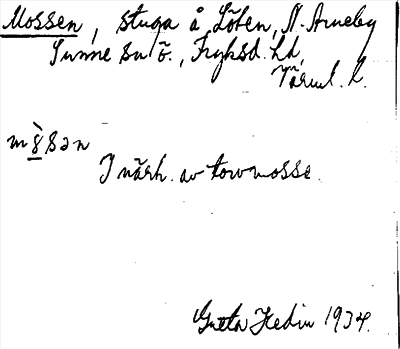 Mossen, stuga å Löten, N. Arneby
Sunne sn ö., Fryksd. hd,
Värml. l.
m8̀sən
I närh. av torvmosse.
Greta Hedin 1934.